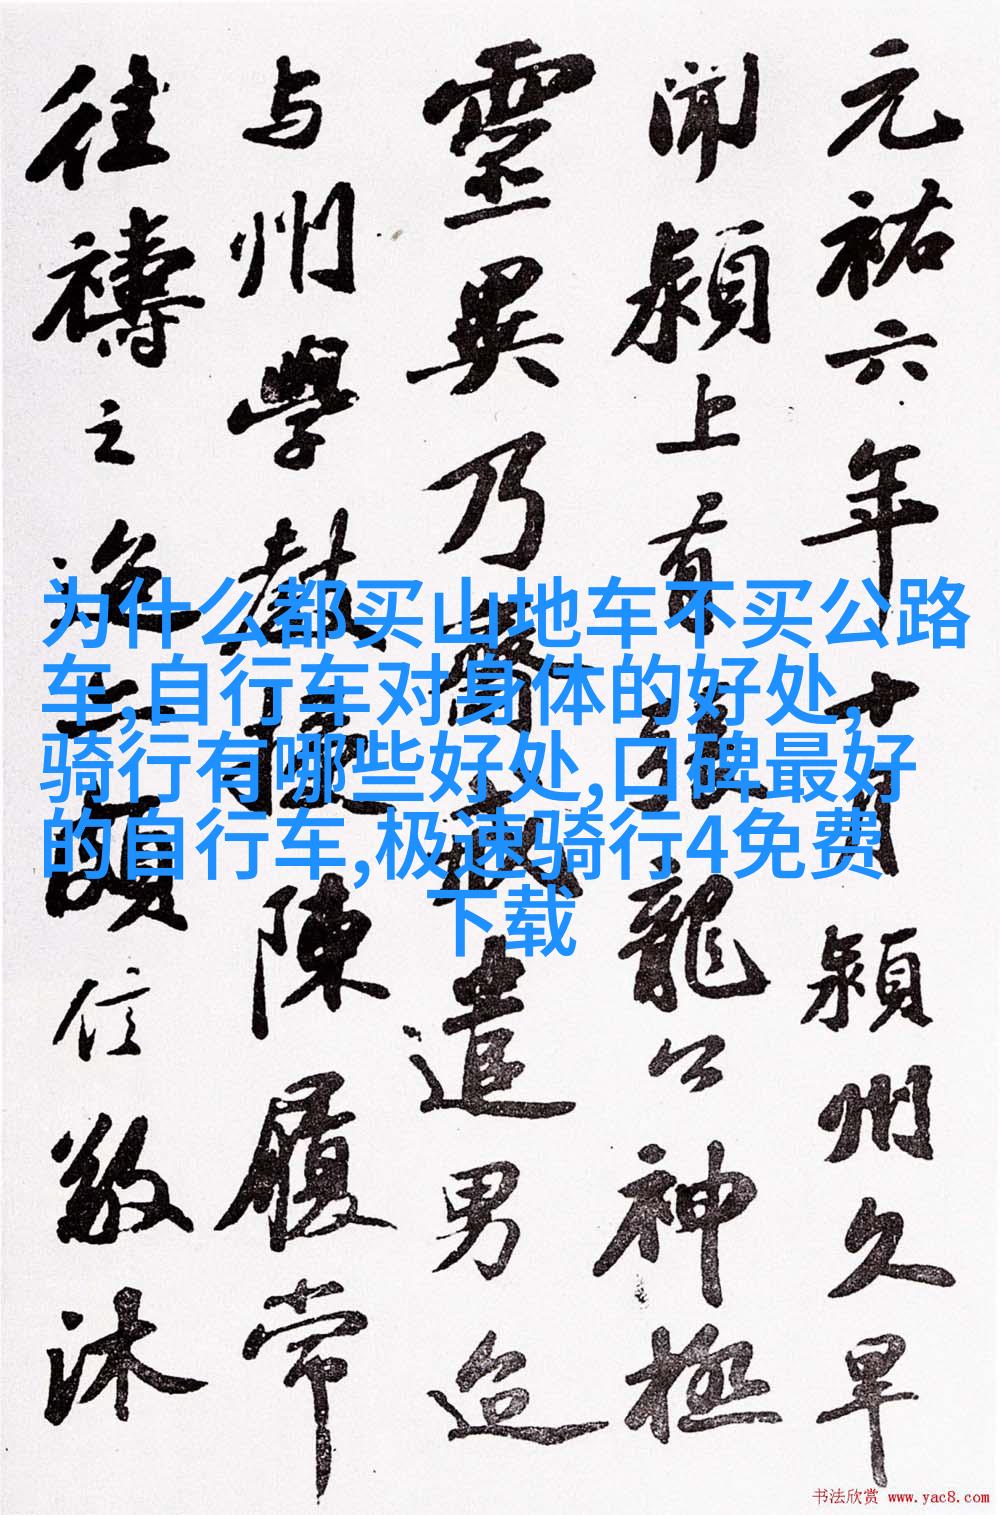 为什么都买山地车不买公路
车,自行车对身体的好处,
骑行有哪些好处,口碑最好
的自行车,极速骑行4免费
下载
元祐六年十月潁州久旱
聞潁上有張龍公神極
靈異乃齋戒遣男迨
与州學教授陳履常
往禱之迨亦頗信敬沐
书法欣赏 www.yac8.com